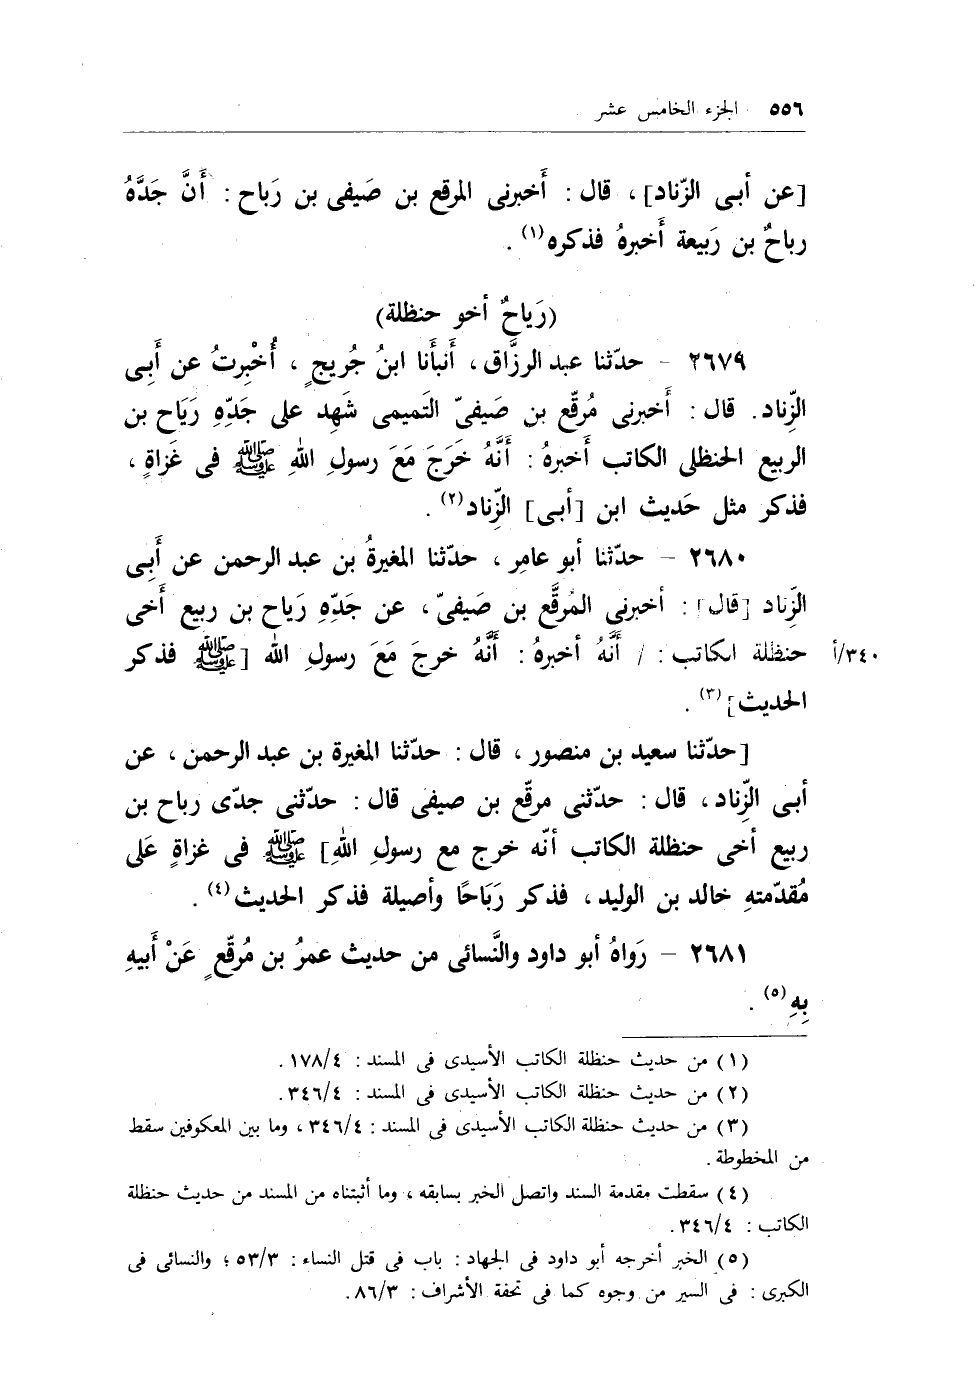 ٥٥٦ الجزء الخامس عشر
[عن أبى الزّناد] ، قال : أَخبرنى المرقع بن صَيفى بن رَباح : أَنَّ جَدَّهُ
رباحُ بن رَبيعة أَخبرهُ فذكره(١) .
(رَياحُ أخو حنظلة)
٢٦٧٩ - حدّثنا عبد الرزَّاق ، أَنبأنا ابنُ جُريجٍ ، أُخْبِرتُ عن أَبِى
الزِّناد. قال : أَخبرنى مُرقّع بن صَيفىّ التَميمى شَهِد على جَدِّهِ رَيَاح بن
الربيع الحنظلى الكاتب أَخبرهُ : أَنَّهُ خَرَجَ مَعَ رسولِ اللهِ ﷺ فى غَزاةٍ ،
فذكر مثل حَديث ابن [أبى] الزِّناد(٢) .
٢٦٨٠ - حدّثنا أبو عامِر ، حدّثنا المغيرةُ بن عبد الرحمن عن أَبِى
الزِّناد [قال] : أخبرنى المُرقَّع بن صَيفىّ ، عن جَدِّهِ رَياح بن ربيع أَخى
حنظلة الكاتب : / أَنَّهُ أخبرهُ : أَنَّهُ خرجَ مَعَ رسولِ الله [ﷺ فذكر ٣٤٠/أ
الحديث](٣) .
[حدّثنا سعيد بن منصور ، قال : حدّثنا المغيرة بن عبد الرحمن ، عن
أبى الزِّناد ، قال : حدّثنى مرقّع بن صيفى قال : حدّثنى جدّى رباح بن
ربيع أخى حنظلة الكاتب أنّه خرج مع رسولِ اللهِ] ﷺ فى غزاةٍ عَلى
مُقدّمتهِ خالد بن الوليد ، فذكر رَبَاحًا وأصيلة فذكر الحديث(٤) .
٢٦٨١ - رَواهُ أبو داود والنَّسائى من حديث عمرُ بن مُرقّعٍ عَنْ أَبيهِ
بِهِ(٥) .
(١) من حديث حنظلة الكاتب الأسيدى فى المسند : ١٧٨/٤ .
(٢) من حديث حنظلة الكاتب الأسيدى فى المسند : ٣٤٦/٤ .
(٣) من حديث حنظلة الكاتب الأسيدى فى المسند : ٣٤٦/٤ ، وما بين المعكوفين سقط
من المخطوطة .
(٤) سقطت مقدمة السند واتصل الخبر بسابقه ، وما أثبتناه من المسند من حديث حنظلة
الكاتب : ٣٤٦/٤ .
(٥) الخبر أخرجه أبو داود فى الجهاد : باب فى قتل النساء : ٥٣/٣ ؛ والنسائى فى
الكبرى : فى السير من وجوه كما فى تحفة الأشراف : ٨٦/٣ .